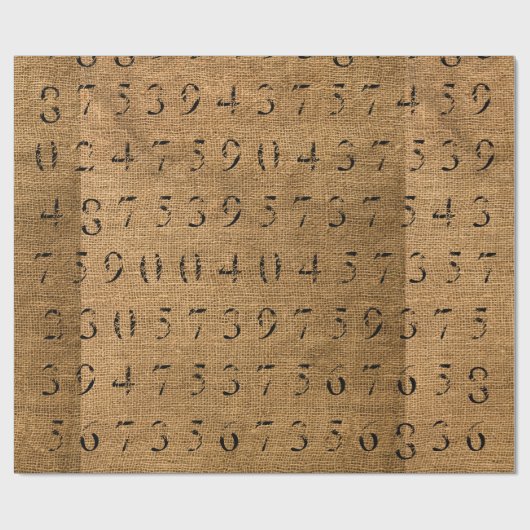 3 7 5 3 9 4 3 7 3 7 4 5 9
0 2 4 7 5 9 0 4 3 7 5 3 9
4 3 7 5 3 9 5 3 7 3 7 5 4 3
7 5 9 0 0 4 0 4 5 7 3 5 7
3 3 0 5 7 3 9 7 5 9 3 7 5
3 9 4 7 5 3 7 3 5 6 7 6 5 3
5 6 7 3 5 6 7 3 5 6 3 3 6